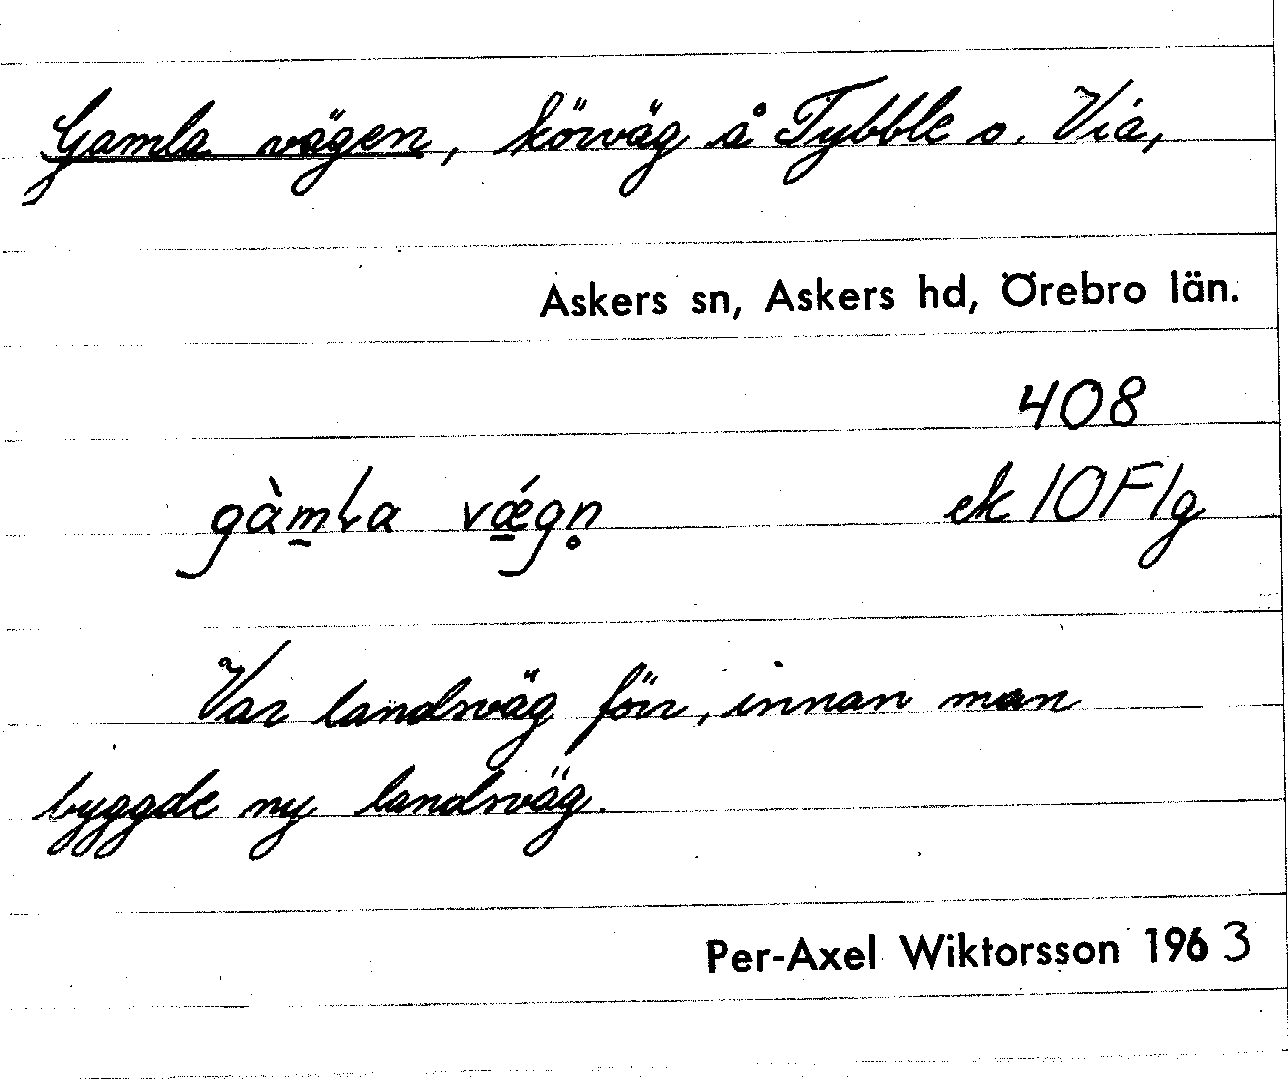 Gamla vägen, körväg å Tybble o. Via,
Askers sn, Askers hd, Örebro län.
408
gàm̲la vǽ̲gn̥ ek 10F1g
Var landsväg förr, innan man
byggde ny landsväg.
Per-Axel Wiktorsson 1963